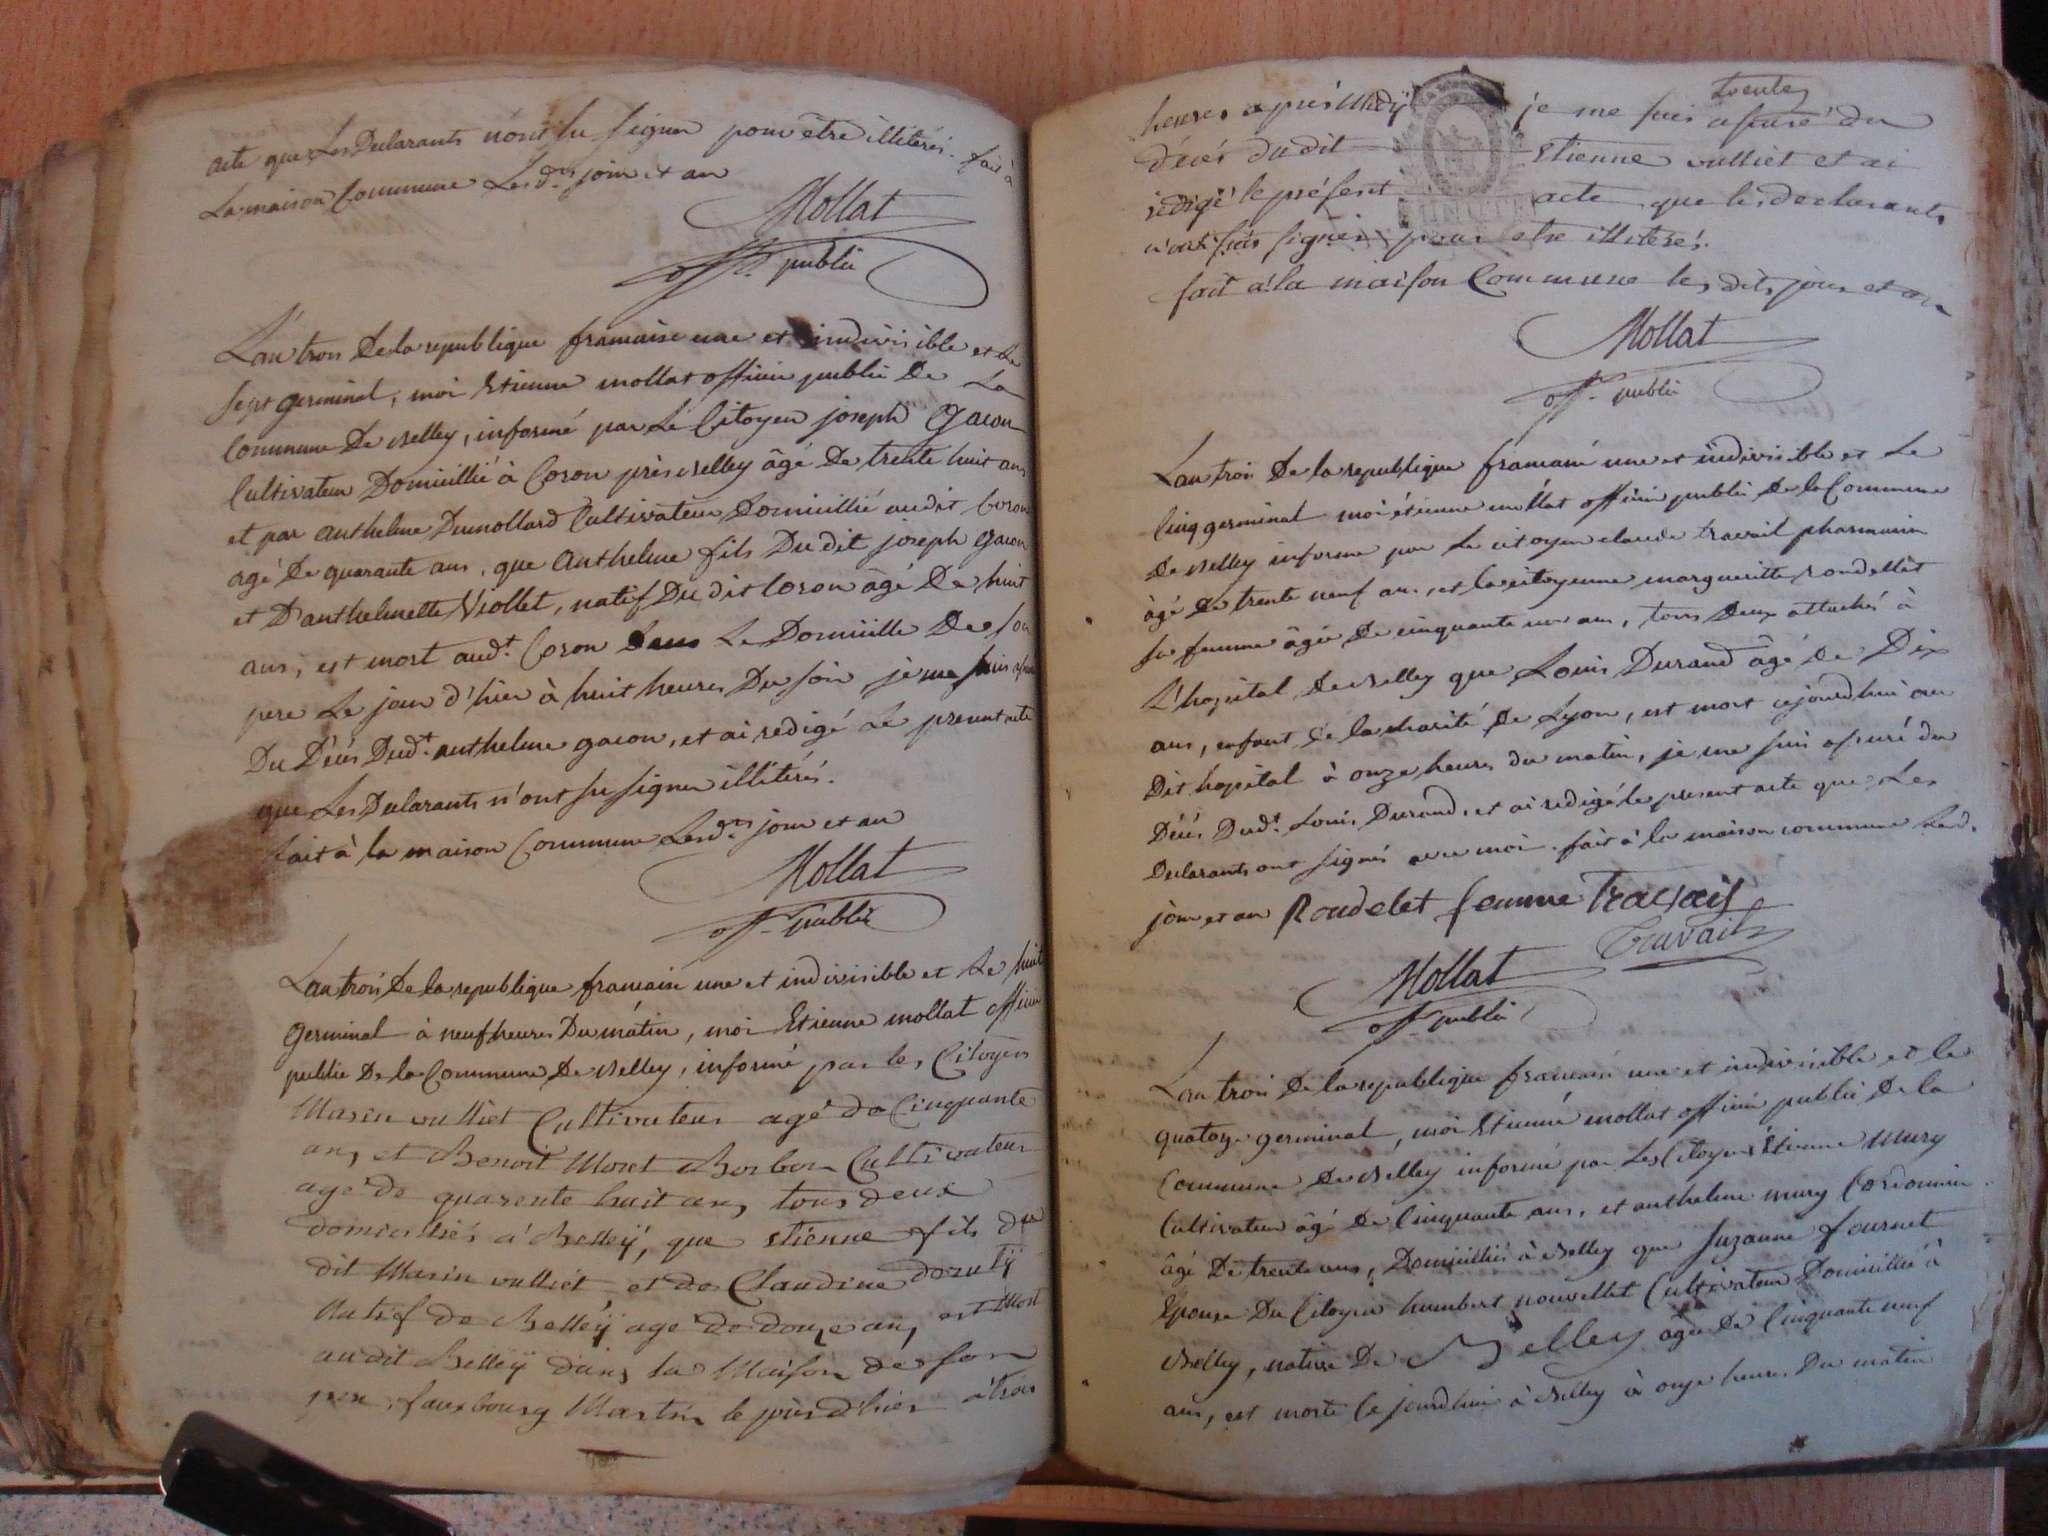 acte que Les Declarants n'ont su signer pour être illiterés. fait à
La maison Commune Lesd.ts jour et an
Mollat
off. public
L'an trois De la republique francaise une et indivisible et Le
sept germinal, moi Etienne mollat officier public De La
Commune De Belley, informé par Le Citoyen joseph gacon
Cultivateur Domicillié à Coron près Belley âgé De trente huit ans
et par anthelme Dumollard Cultivateur Domicillié audit Coron
agé De quarante ans, que Anthelme fils Dudit joseph gacon
et D'anthelmette Viollet, natif Dudit Coron âgé De huit
ans, est mort aud.t Coron Dans Le Domicille De son
pere Le jour d'hier à huit heures Du soir, je me suis assuré
Du Décés Dud.t anthelme gacon, et ai redigé Le present acte
que Les Declarants n'ont su signer illiterés.
fait à la maison Commune Lesd.ts jour et an
Mollat
off. public
L'an trois De la republique francaise une et indivisible et Le huit
germinal à neuf heures Du matin, moi Etienne mollat officier
public De la Commune De Belley, informé par les Citoyens
Marin vulliet Cultivateur agé de Cinquante
ans et Benoit Moret Cultivateur
agé de quarente huit ans tous deux
domicilliés a Belleÿ, que etienne fils du
dit Marin vulliet et de Claudine
Natif de Belleÿ agé de douze ans est Mort
audit Belleÿ dans la Maison de son
pere fauxbourg Martin le jour d'hier à trois
heures après Midÿ je me suis assuré du
trente
décés du dit Etienne vulliet et ai
rédigé le présent acte que les declarants
n'ont pas signés pour etre illiterés.
fait a la maison Commune les dits jour et an
Mollat
off. public
L'an trois De la republique francaise une et indivisible et Le
Cinq germinal moi étienne mollat officier public De la Commune
De Belley informe par Le citoyen claude travail pharmacien
âgé De trente neuf ans, et la citoyenne margueritte rondellet
sa femme âgée De cinquante un ans, tous Deux attachés à
L'hopital De Belley que Louis Durand âgé De Dix
ans, enfant de la charité De Lyon, est mort cejourdhui au
Dit hopital à onze heures du matin, je me suis assuré du
Décés Dud.t Louis Durand, et ai redigé le present acte que Les
Declarants ont signés avec moi. fait à la maison commune Lesd.
jour et an Roudelet femme Travail
Travail
Mollat
off. public
L'an trois De la republique francaise une et indivisible et le
quatorze germinal, moi Etienne mollat officier public De la
Commune De Belley informé par Les Citoyens Etienne mury
Cultivateur âgé De Cinquante ans, et anthelme mury Cordonnier
âgé De trente ans, Domicilliés à Belley que Suzanne fournet
Epouse Du Citoyen humbert nouvellet Cultivateur Domicillié à
Belley, native De Belley agée De Cinquante neuf
ans, est morte cejourdhui à Belley à onze heures Du matin